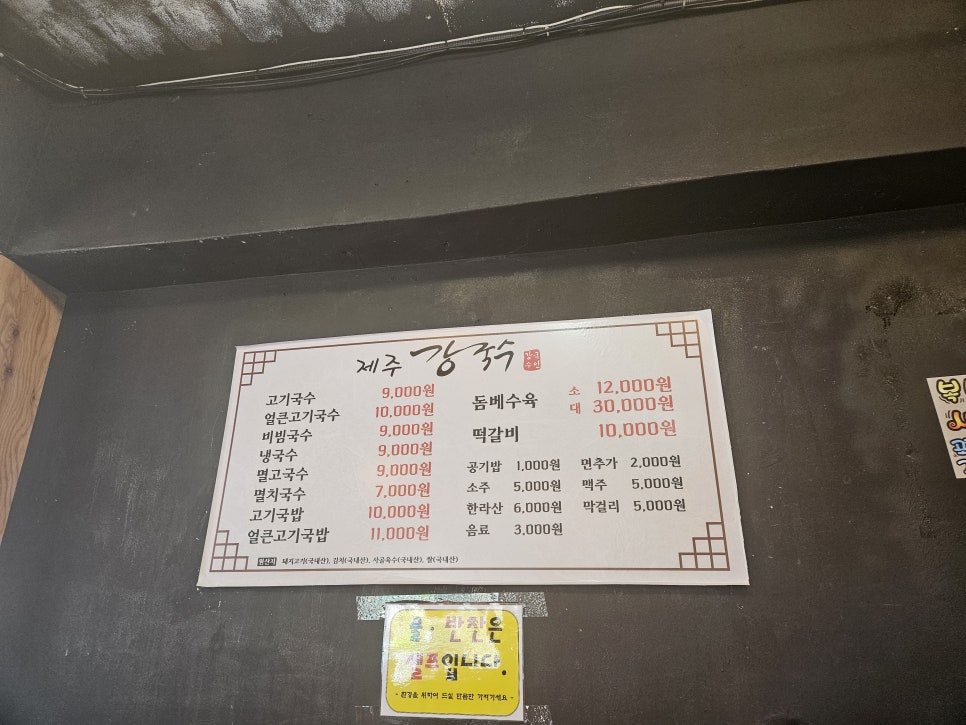 제주 강국수
고기국수 9,000원
얼큰고기국수 10,000원
비빔국수 9,000원
냉국수 9,000원
멸고국수 9,000원
멸치국수 7,000원
고기국밥 10,000원
얼큰고기국밥 11,000원
돔베수육 소 12,000원
대 30,000원
떡갈비 10,000원
공기밥 1,000원 면추가 2,000원
소주 5,000원 맥주 5,000원
한라산 6,000원 막걸리 5,000원
음료 3,000원
원산지 돼지고기(국내산), 김치(국내산), 사골육수(국내산), 쌀(국내산)
물, 반찬은
셀프입니다.
- 환경을 위하여 드실 만큼만 가져가세요 -